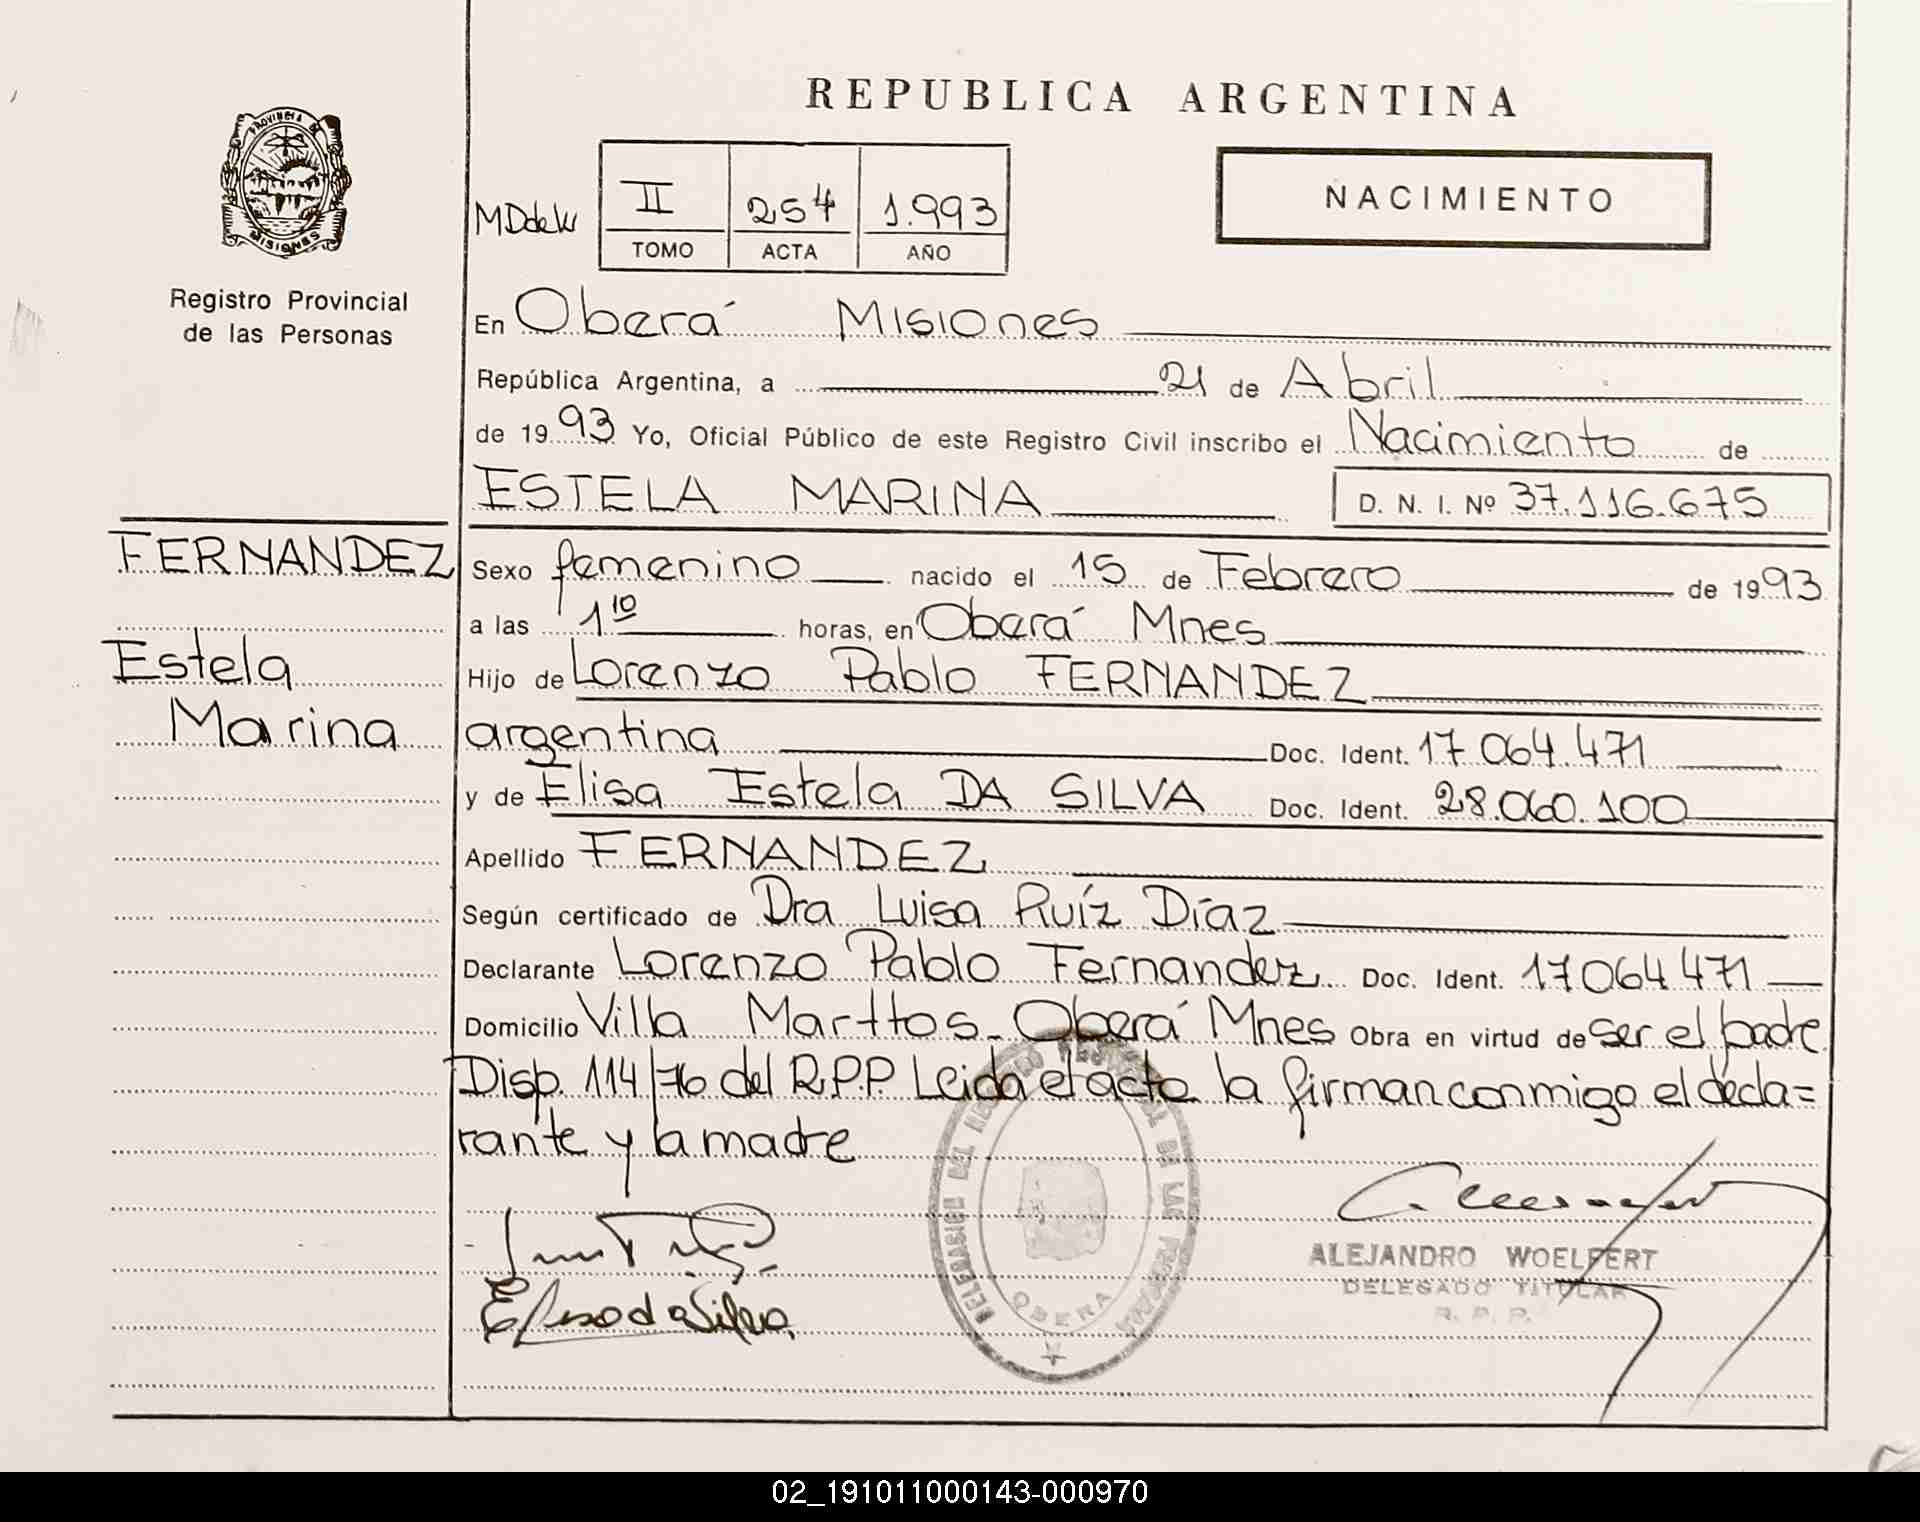 REPUBLICA ARGENTINA
PROVINCIA DE
MISIONES
Registro Provincial
de las Personas
MDdeW
II 254 1.993
TOMO ACTA AÑO
NACIMIENTO
En Oberá Misiones
República Argentina, a 21 de Abril
de 1993 Yo, Oficial Público de este Registro Civil inscribo el Nacimiento de
ESTELA MARINA D. N. I. Nº 37.116.675
FERNANDEZ
Estela
Marina
Sexo femenino nacido el 15 de Febrero de 1993
a las 1 10 horas, en Oberá Mnes
Hijo de Lorenzo Pablo FERNANDEZ
argentina Doc. Ident. 17 064.471
y de Elisa Estela DA SILVA Doc. Ident. 28.060.100
Apellido FERNANDEZ
Según certificado de Dra Luisa Ruíz Díaz
Declarante Lorenzo Pablo Fernandez Doc. Ident. 17064471
Domicilio Villa Marttos - Oberá Mnes Obra en virtud de ser el padre
Disp. 114/76 del R.P.P Leida el acta la firman conmigo el decla=
rante y la madre
DELEGACION DEL REGISTRO PROVINCIAL DE LAS PERSONAS
OBERA
Elisa da Silva
ALEJANDRO WOELFERT
DELEGADO TITULAR
R. P. P.
02_191011000143-000970